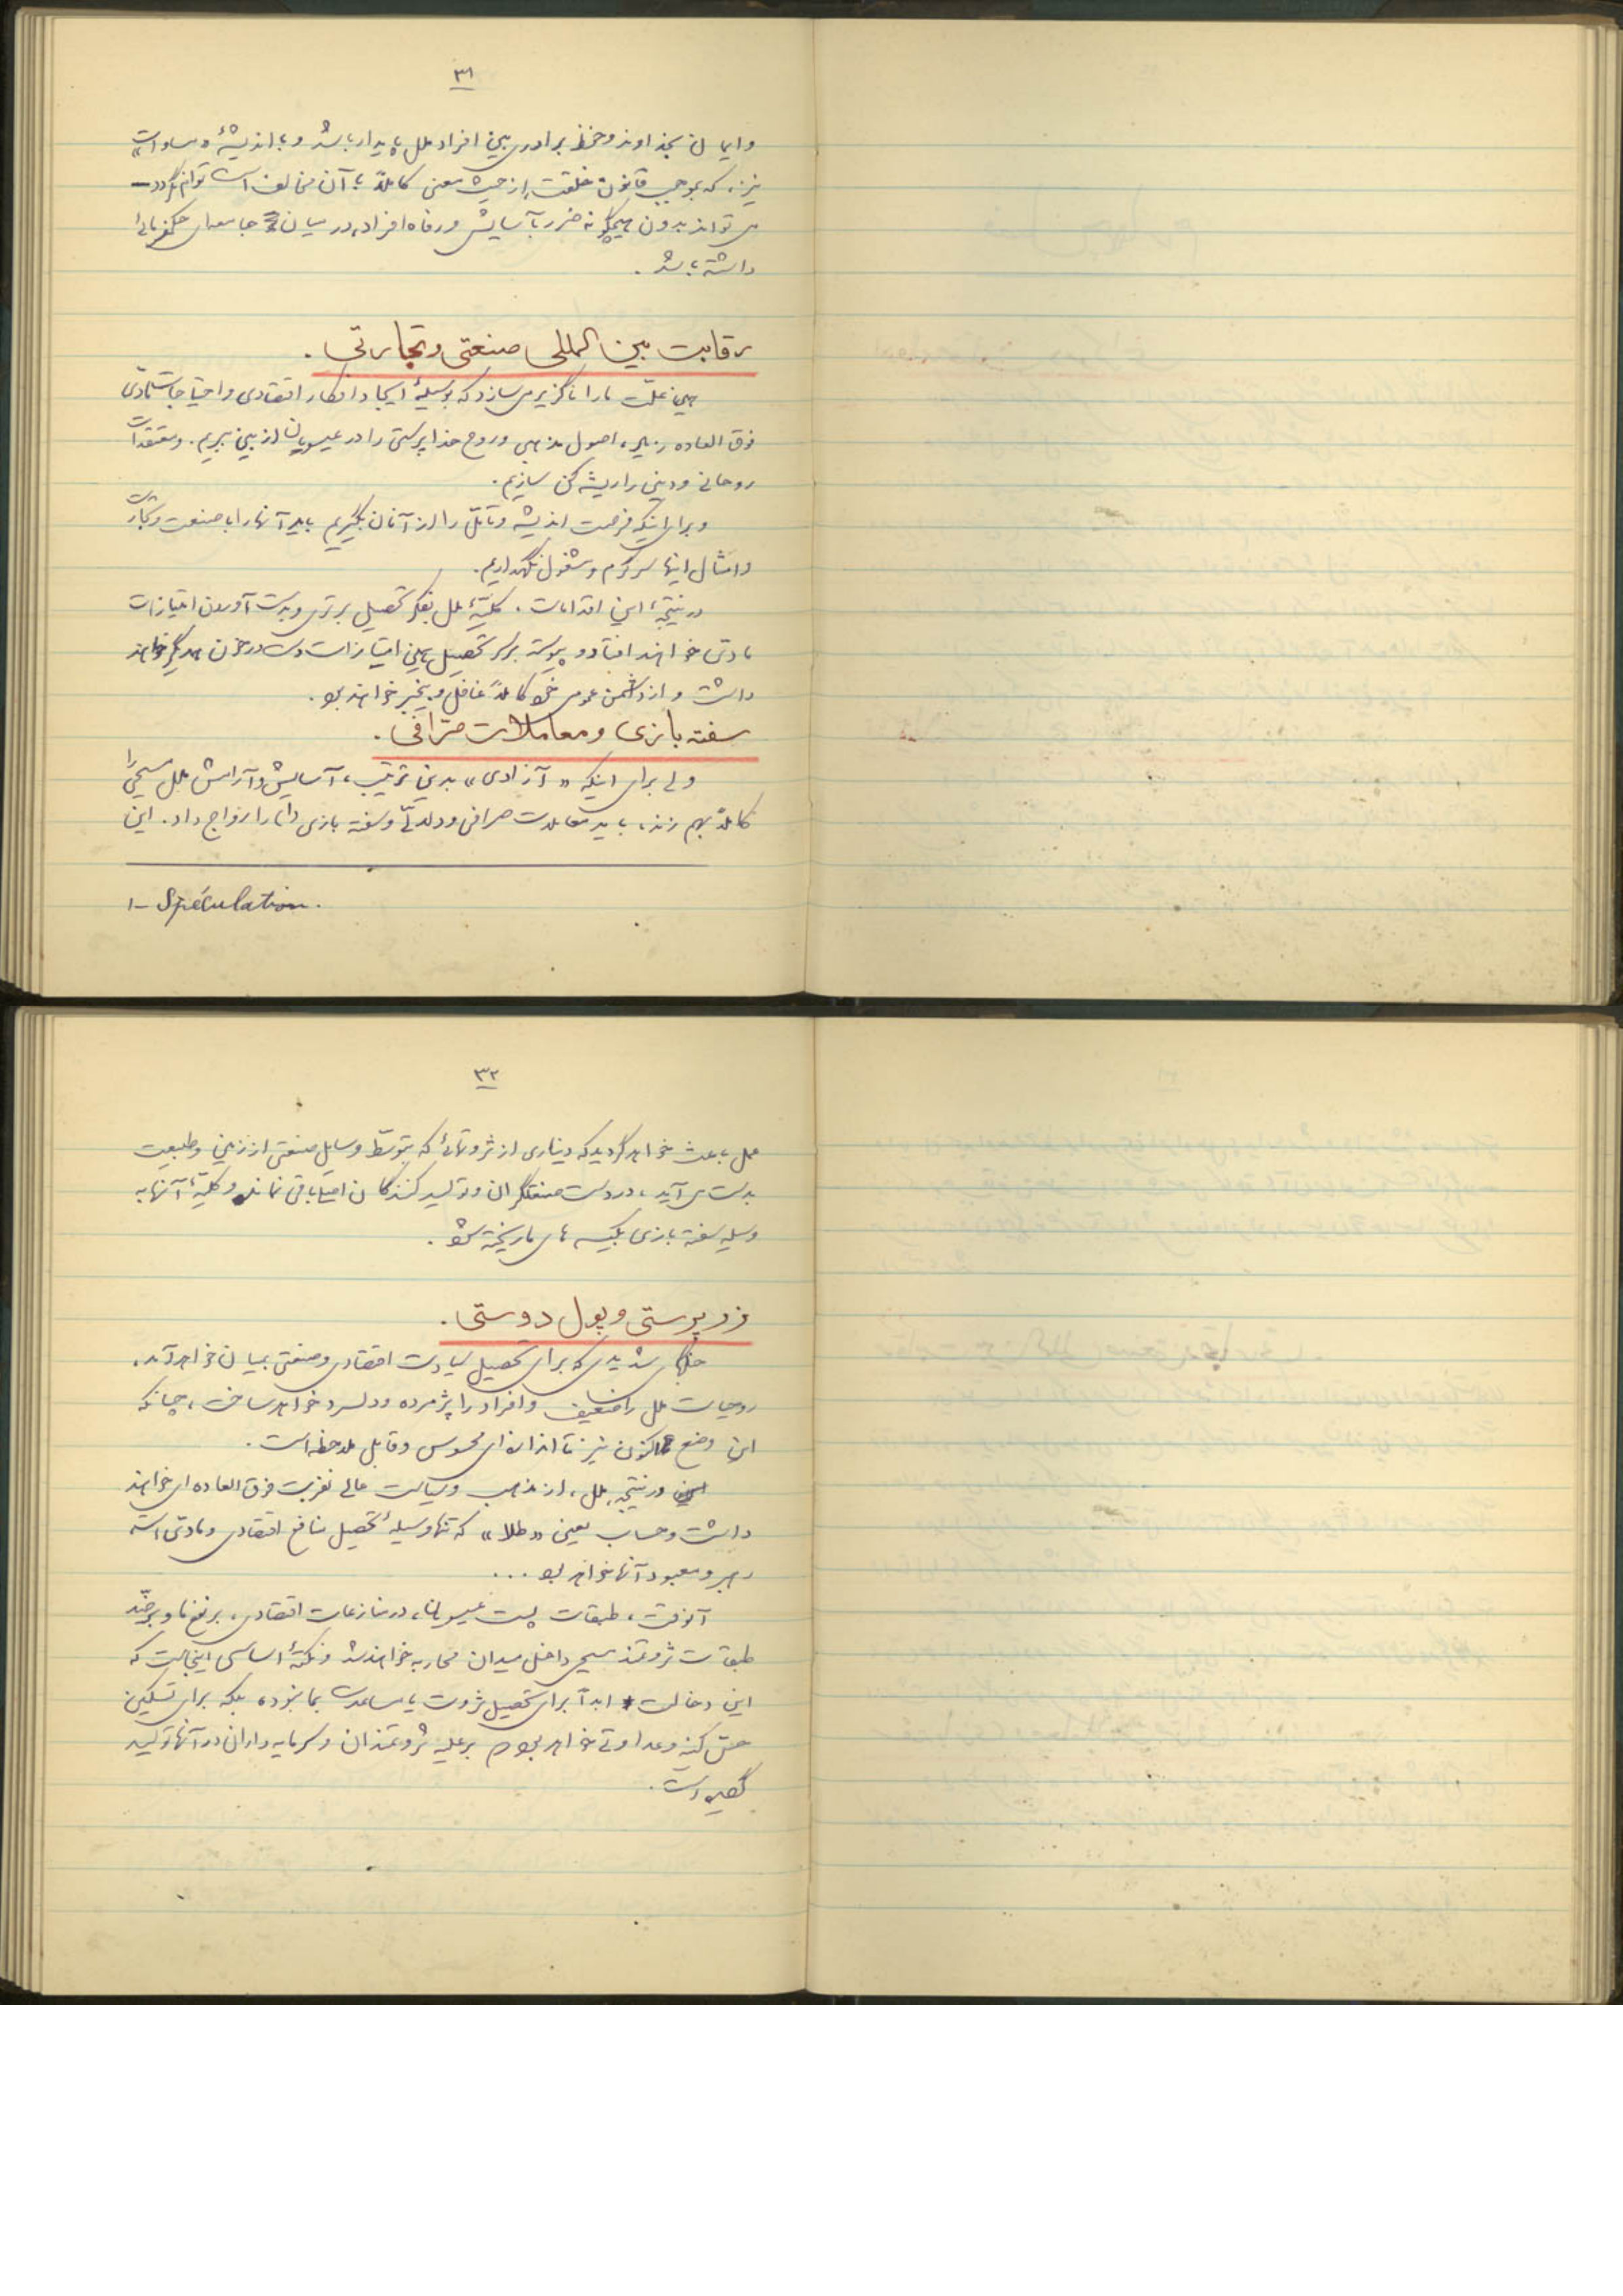 ۳۱
و ایمان بخداوند و حفظ برادری بین افراد ملل پایدار باشد و با اندیشهٔ «مساوات»
نیز، که بموجب قانون خلقت از حیث معنی کاملاً با آن مخالف است توأم نگردد -
می‌تواند بدون هیچگونه ضرر بآسایش و رفاه افراد، در میان جامعه‌ای حکمفرمائی
داشته باشد .
رقابت بین المللی صنعتی و تجارتی .
همین علّت ما را ناگزیر می‌سازد که بوسیلهٔ ایجاد افکار اقتصادی و احتیاجات مادّی
فوق العاده زیاد، اصول مذهبی و روح خداپرستی را در عیسویان از بین ببریم. و معتقدات
روحانی و دینی را ریشه کن سازیم.
و برای اینکه فرصت اندیشه و تأمّل را از آنان بگیریم باید آنها را با صنعت و تجارت
و امثال اینها سرگرم و مشغول نگهداریم.
در نتیجهٔ این اقدامات، کلیّهٔ ملل بفکر تحصیل برتری و بدست آوردن امتیازات
مادّی خواهند افتاد و پیوسته بر سر تحصیل همین امتیازات دست در خون همدیگر خواهند
داشت و از دشمن عمومی خود کاملاً غافل و بیخبر خواهند بود.
سفته بازی و معاملات صرّافی .
ولی برای اینکه «آزادی» بدین ترتیب، آسایش و آرامش ملل مسیحی را
کاملاً بهم زند، باید معاملات صرافی و دلالی و سفته بازی را رواج داد. این
۱- Spéculation.
۳۲
عمل باعث خواهد گردید که دیناری از ثروتهائی که بتوسّط وسایل صنعتی از زمین و طبیعت
بدست می‌آید، در دست صنعتگران و تولید کنندگان باقی نماند و کلیّهٔ آنها به
وسیله سفته بازی بکیسه های ما ریخته شود .
زر پرستی و پول دوستی .
جنگهای شدیدی که برای تحصیل سیادت اقتصادی و صنعتی بمیان خواهد آمد،
روحیات ملل را ضعیف و افراد را پژمرده و دلسرد خواهد ساخت، چنانکه
این وضع اکنون نیز تا اندازه‌ای محسوس و قابل ملاحظه است.
در نتیجه، ملل، از مذهب و سیاست عالی نفرت فوق العاده ای خواهند
داشت و حساب یعنی «طلا» که تنها وسیلهٔ تحصیل منافع اقتصادی و مادّی است
رهبر و معبود آنها خواهد بود ...
آنوقت، طبقات پست عیسویان، در منازعات اقتصادی، بر نفع ما و بر ضدّ
طبقات ثروتمند مسیحی داخل میدان محاربه خواهند شد و نکتهٔ اساسی اینجاست که
این دخالت ابداً برای تحصیل ثروت یا مساعدت بما نبوده، بلکه برای تسکین
حسّ کینه و عداوتی خواهد بود که بر علیه ثروتمندان و سرمایه داران در آنها تولید
گردیده است.